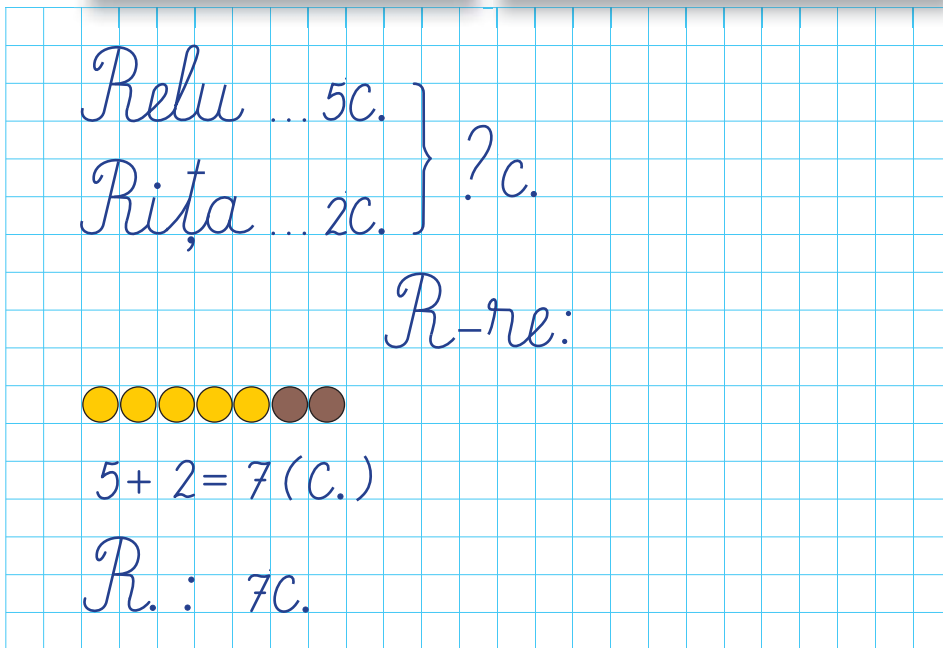 Relu ... 5c.
} ?c.
Rița ... 2c.
R-re:
5 + 2 = 7 (c.)
R. : 7c.